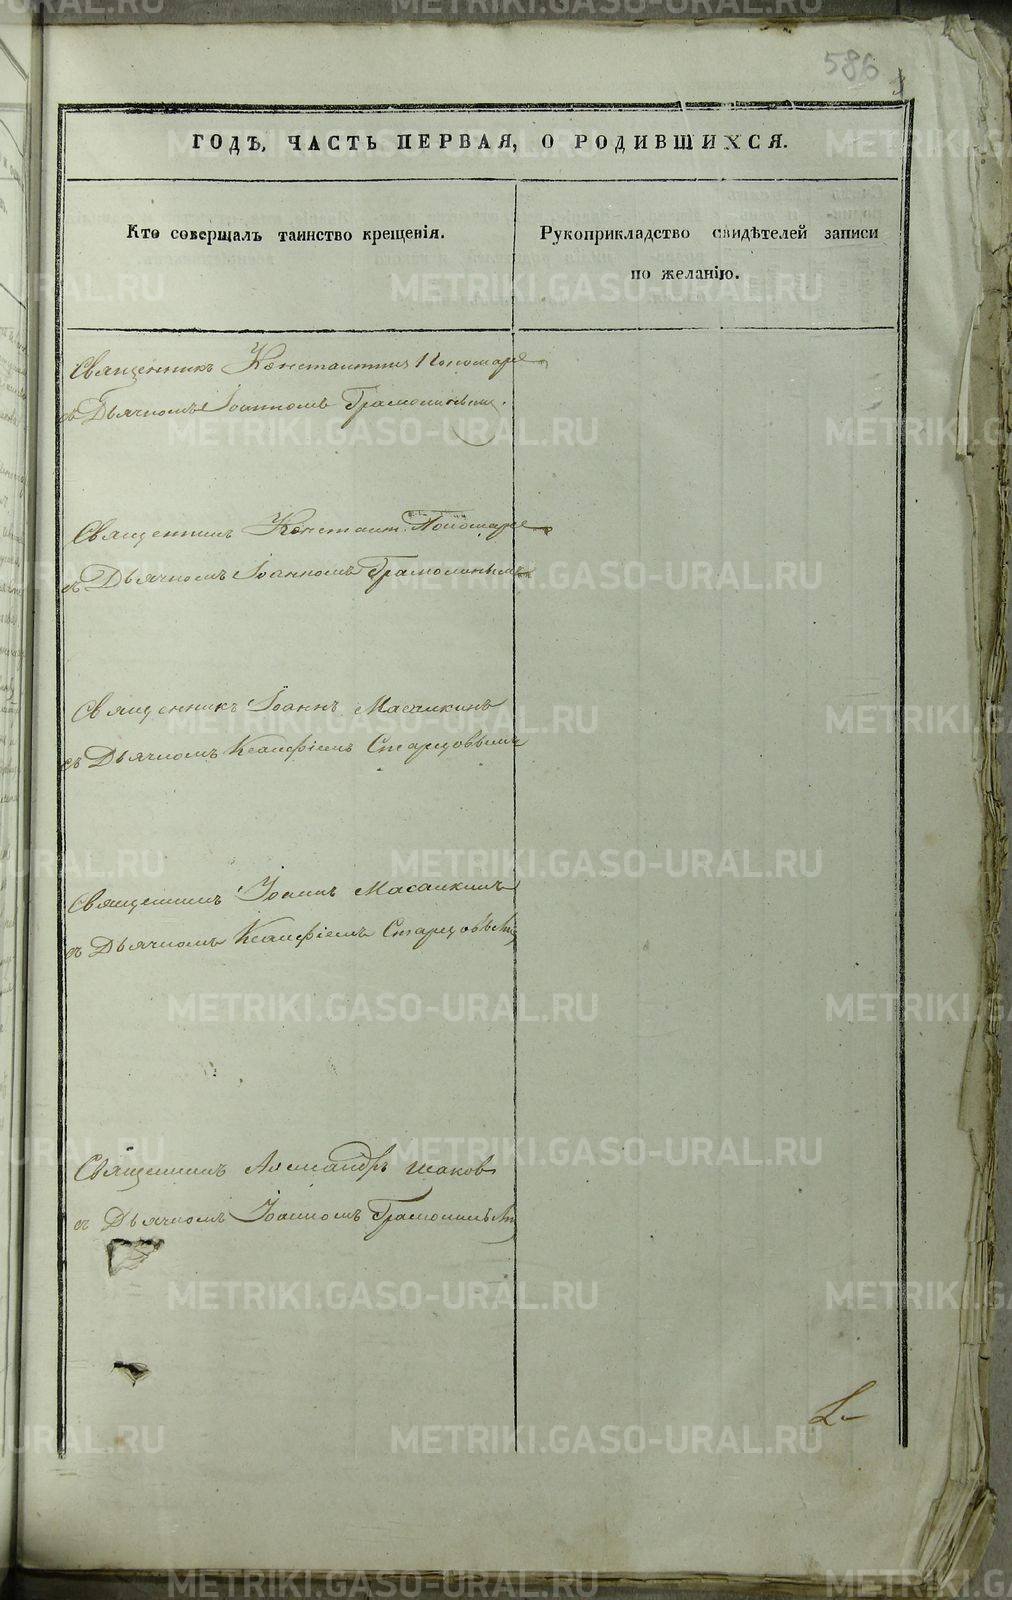 586
ГОДЪ, ЧАСТЬ ПЕРВАЯ, О РОДИВШИХСЯ.
Кто совершалъ таинство крещенія.
Рукоприкладство свидѣтелей записи
по желанію.
Священникъ Константинъ Пономаре
съ Дьячкомъ Іоанномъ Грамолинымъ.
Священникъ Констант. Пономаре
съ Дьячкомъ Іоанномъ Грамолинымъ
Священникъ Іоаннъ Масалкинъ
съ Дьячкомъ Ксанфіемъ Старцовымъ
Священникъ Іоаннъ Масалкинъ
съ Дьячкомъ Ксанфіемъ Старцовымъ
Священникъ Александръ
съ Дьячкомъ Іоанномъ Грамолинымъ
METRIKI.GASO-URAL.RU